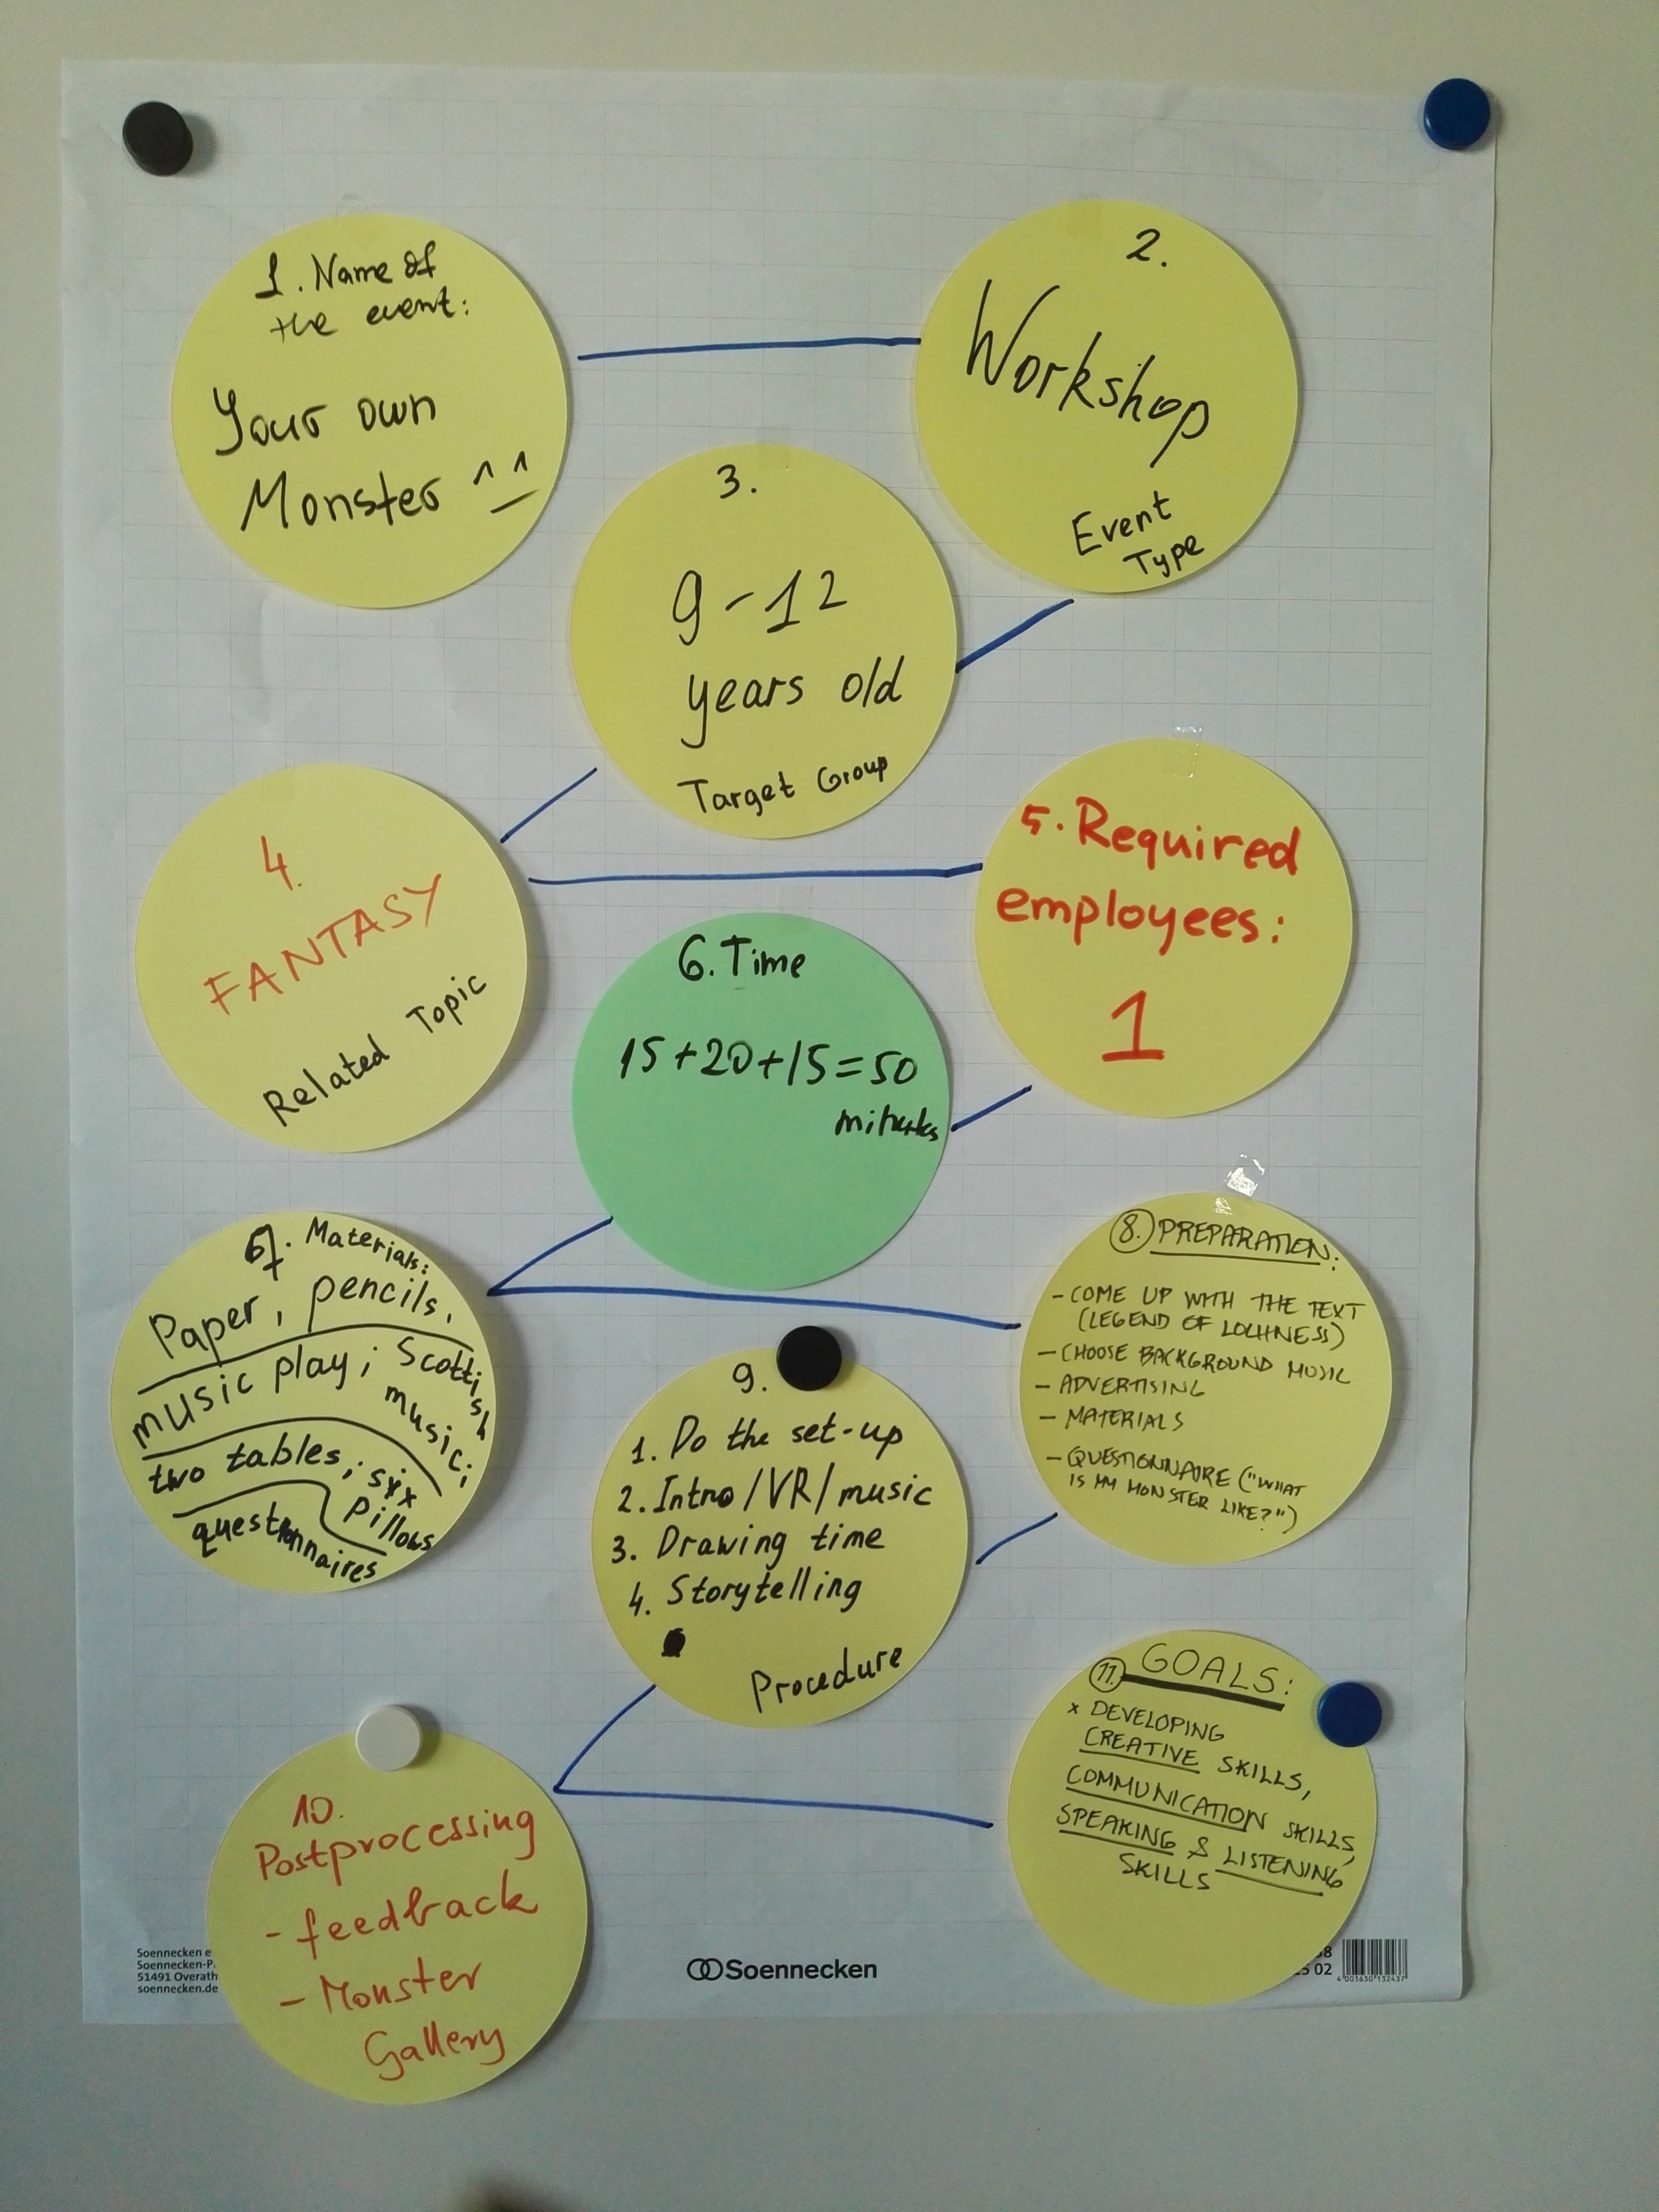 1. Name of
the event:
Your own
Monster ^_^
2.
Workshop
Event
Type
3.
9-12
years old
Target Group
4.
FANTASY
Related Topic
5. Required
employees:
1
6. Time
15+20+15=50
minutes
7. Materials:
Paper, pencils,
music play; Scottish
music;
two tables; six
pillows
questionnaires
8. PREPARATION:
- COME UP WITH THE TEXT
(LEGEND OF LOCHNESS)
- CHOOSE BACKGROUND MUSIC
- ADVERTISING
- MATERIALS
- QUESTIONNAIRE ("WHAT
IS MY MONSTER LIKE?")
9.
1. Do the set-up
2. Intro/VR/music
3. Drawing time
4. Storytelling
Procedure
10.
Postprocessing
- feedback
- Monster
Gallery
11. GOALS:
x DEVELOPING
CREATIVE SKILLS,
COMMUNICATION SKILLS,
SPEAKING & LISTENING
SKILLS
Soennecken e
Soennecken-P
51491 Overath
soennecken.de
Soennecken
02
4 003630 132437